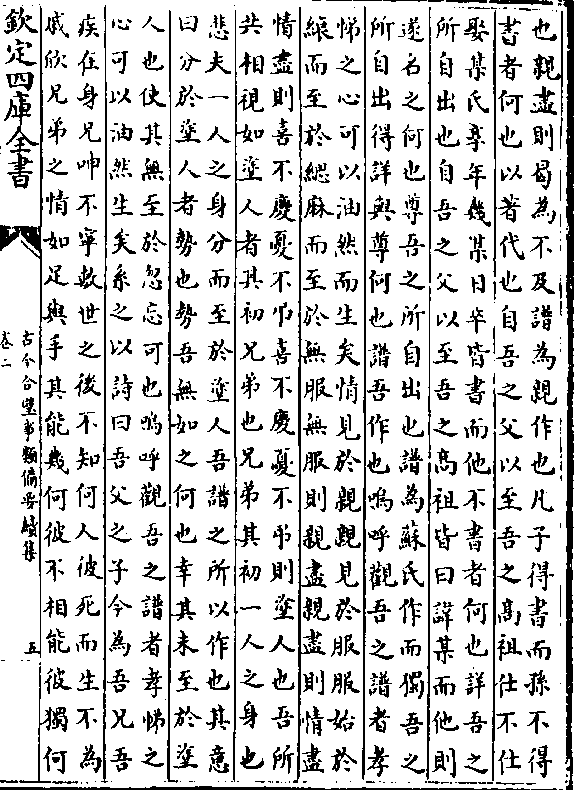 也親盡則曷為不及譜為親作也凡子得書而孫不得
書者何也以著代也自吾之父以至吾之高祖仕不仕
娶某氏享年幾某日卒皆書而他不書者何也詳吾之
所自出也自吾之父以至吾之高祖皆曰諱某而他則
遂名之何也尊吾之所自出也譜為蘇氏作而獨吾之
所自出得詳與尊何也譜吾作也嗚呼觀吾之譜者孝
悌之心可以油然而生矣情見於親親見於服服始於
縗而至於緦麻而至於無服無服則親盡親盡則情盡
情盡則喜不慶憂不弔喜不慶憂不弔則塗人也吾所
共相視如塗人者其初兄弟也兄弟其初一人之身也
悲夫一人之身分而至於塗人吾譜之所以作也其意
曰分於塗人者勢也勢吾無如之何也幸其未至於塗
人也使其無至於忽忘可也嗚呼觀吾之譜者孝悌之
心可以油然生矣系之以詩曰吾父之子今為吾兄吾
疾在身兄呻不寧數世之後不知何人彼死而生不為
戚欣兄弟之情如足與手其能幾何彼不相能彼獨何
欽定四庫全書
古今合璧事類備要續集
卷二
五